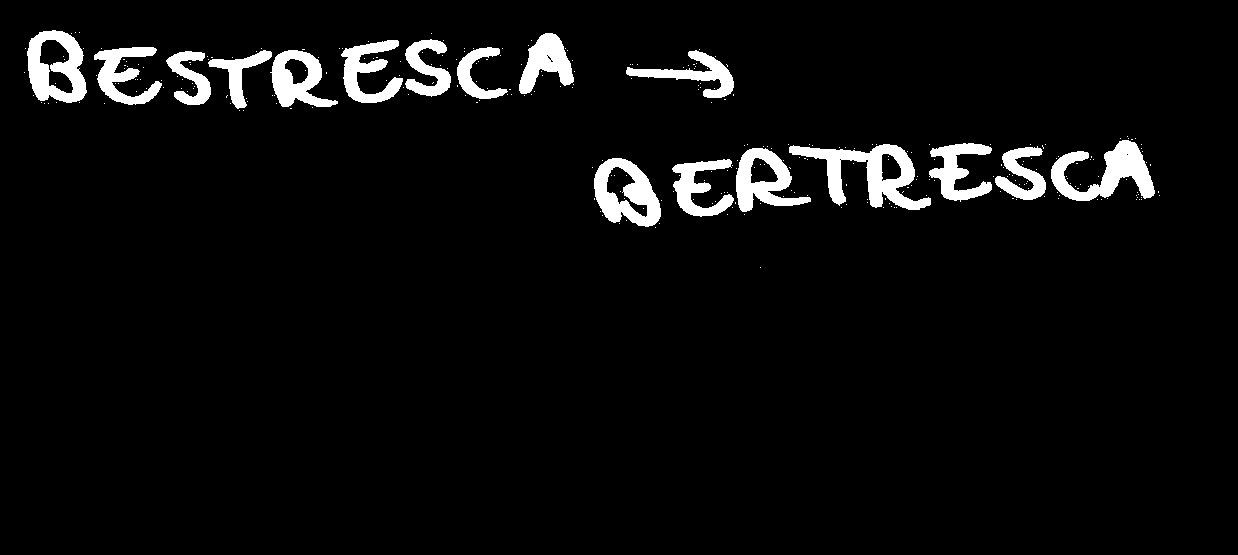 BESTRESCA →
BERTRESCA